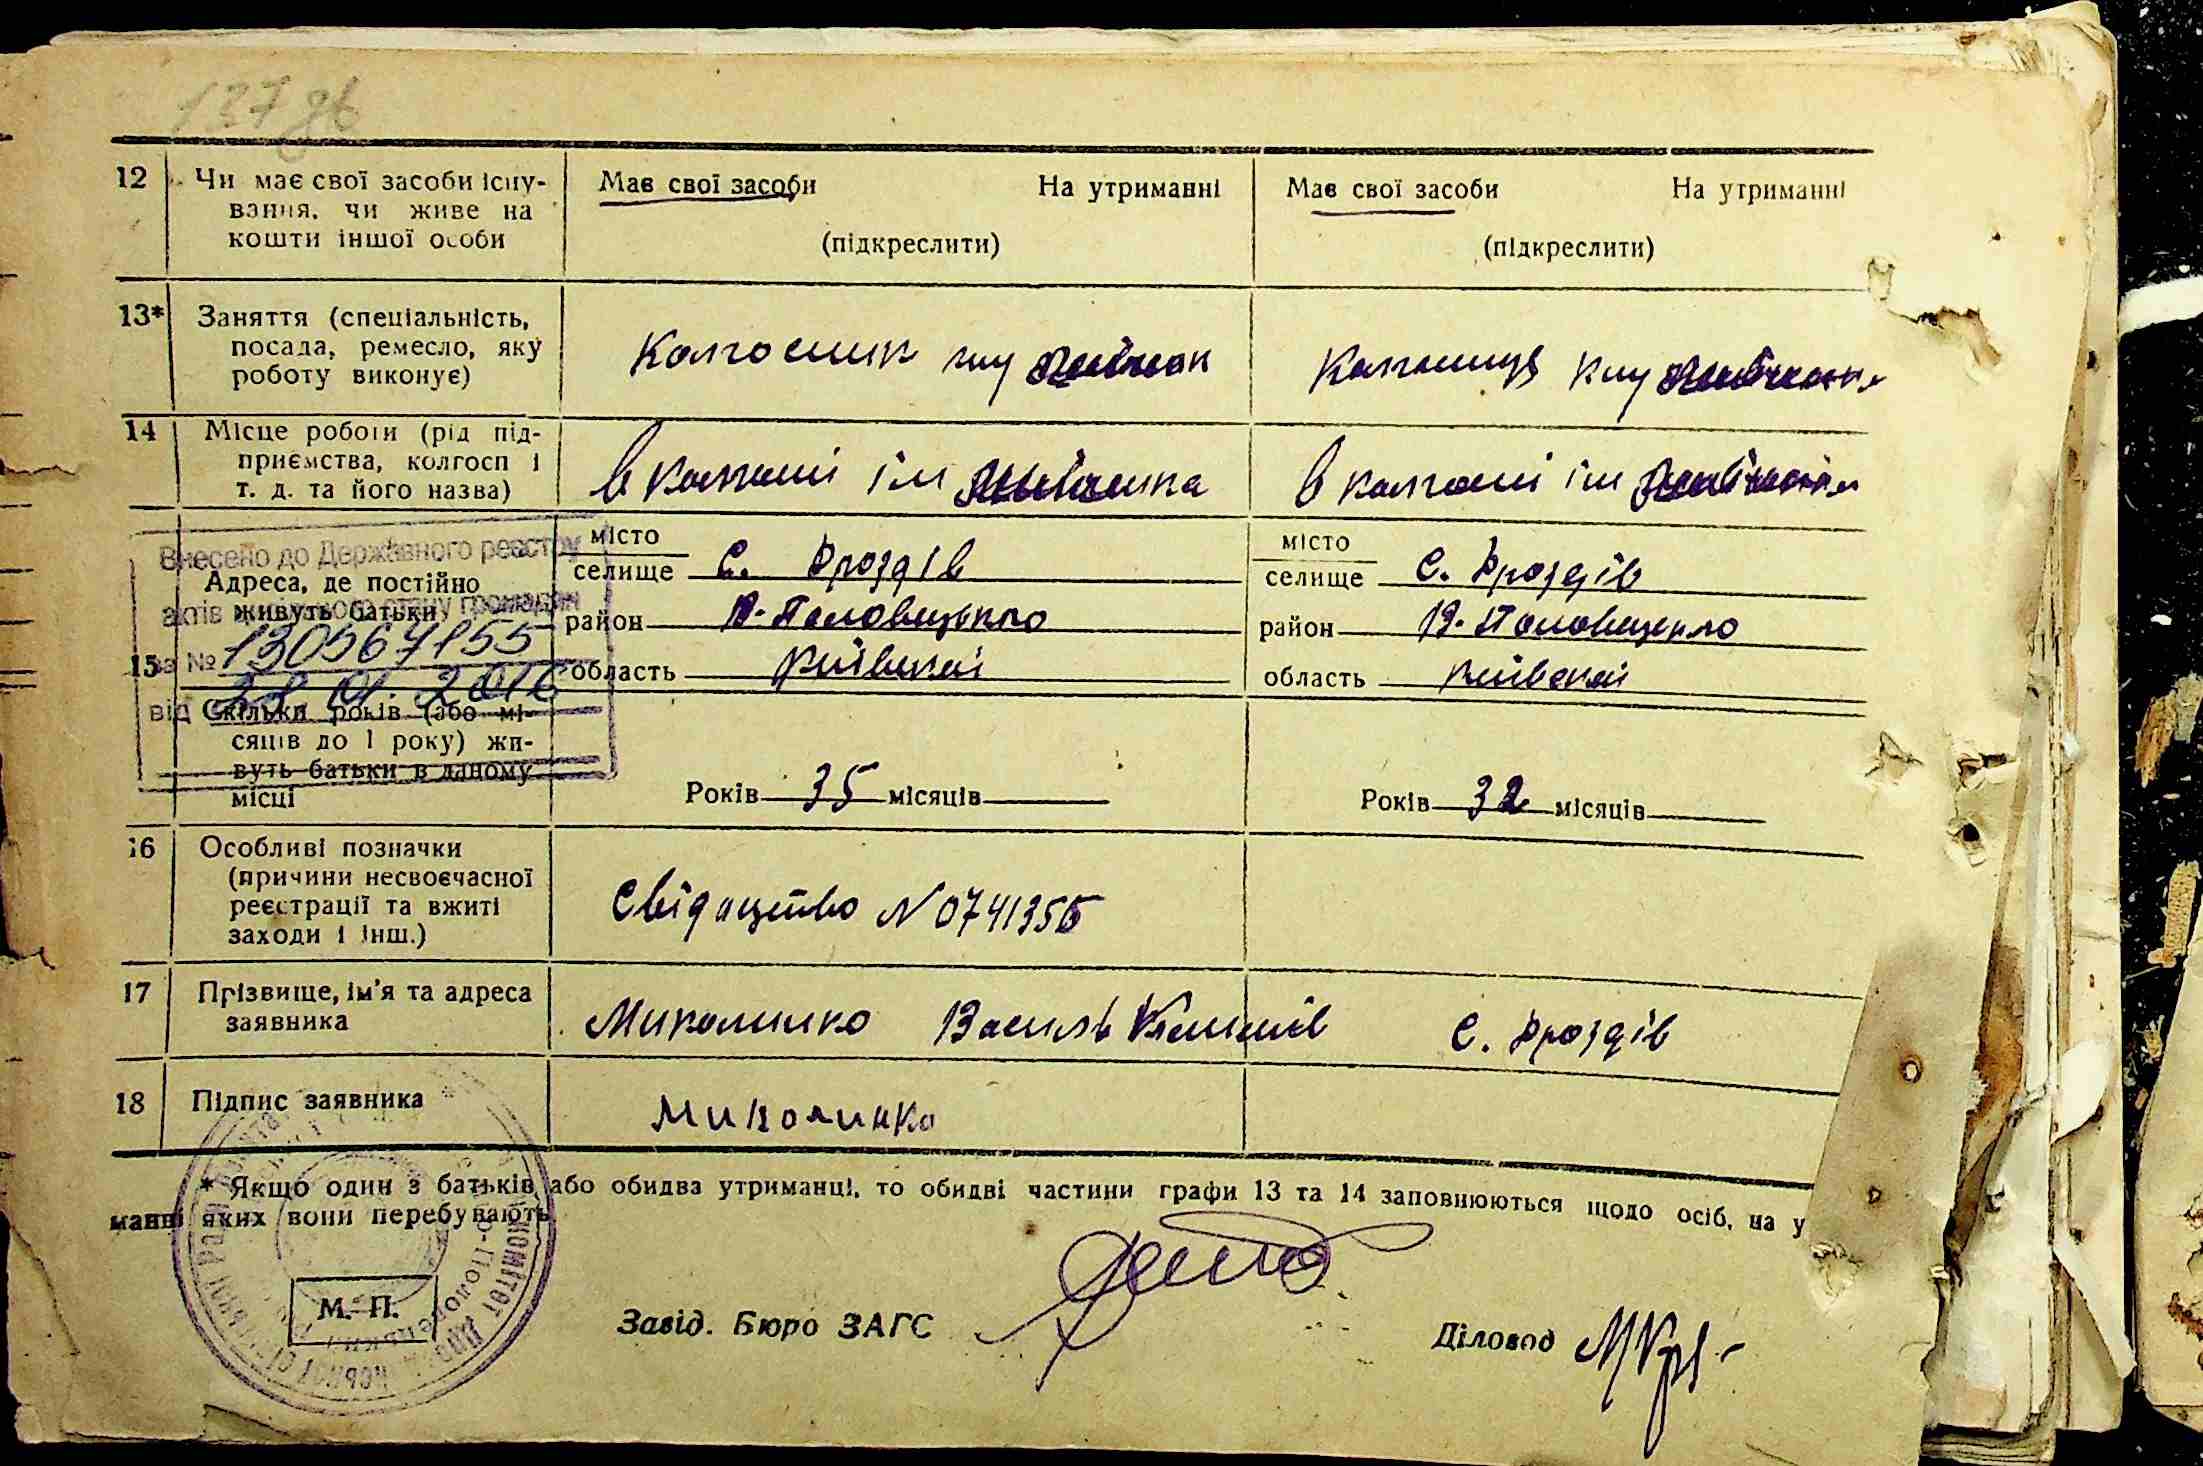 137 зв
12 Чи має свої засоби існу-
вання, чи живе на
кошти іншої особи
Має свої засоби На утриманні
(підкреслити)
Має свої засоби На утриманні
(підкреслити)
13* Заняття (спеціальність,
посада, ремесло, яку
роботу виконує)
Колгоспник
Колгоспниця
14 Місце роботи (рід під-
приємства, колгосп і
т. д. та його назва)
в колгоспі ім
в колгоспі ім
Внесено до Державного реєстру
актів цивільного стану громадян
за № 130567155
від 2016
15 Адреса, де постійно
живуть батьки
місто
селище с. Дроздів
район В-Половецького
область Київської
місто
селище с. Дроздів
район В-Половецького
область Київської
Скільки років (або мі-
сяців до 1 року) жи-
вуть батьки в даному
місці
Років 35 місяців
Років 32 місяців
16 Особливі позначки
(причини несвоєчасної
реєстрації та вжиті
заходи і інш.)
Свідоцтво N 0741355
17 Прізвище, ім'я та адреса
заявника
Миколинко Василь с. Дроздів
18 Підпис заявника
Миколинко
* Якщо один з батьків або обидва утриманці, то обидві частини графи 13 та 14 заповнюються щодо осіб, на у
манні яких вони перебувають
М. П.
Завід. Бюро ЗАГС
Діловод